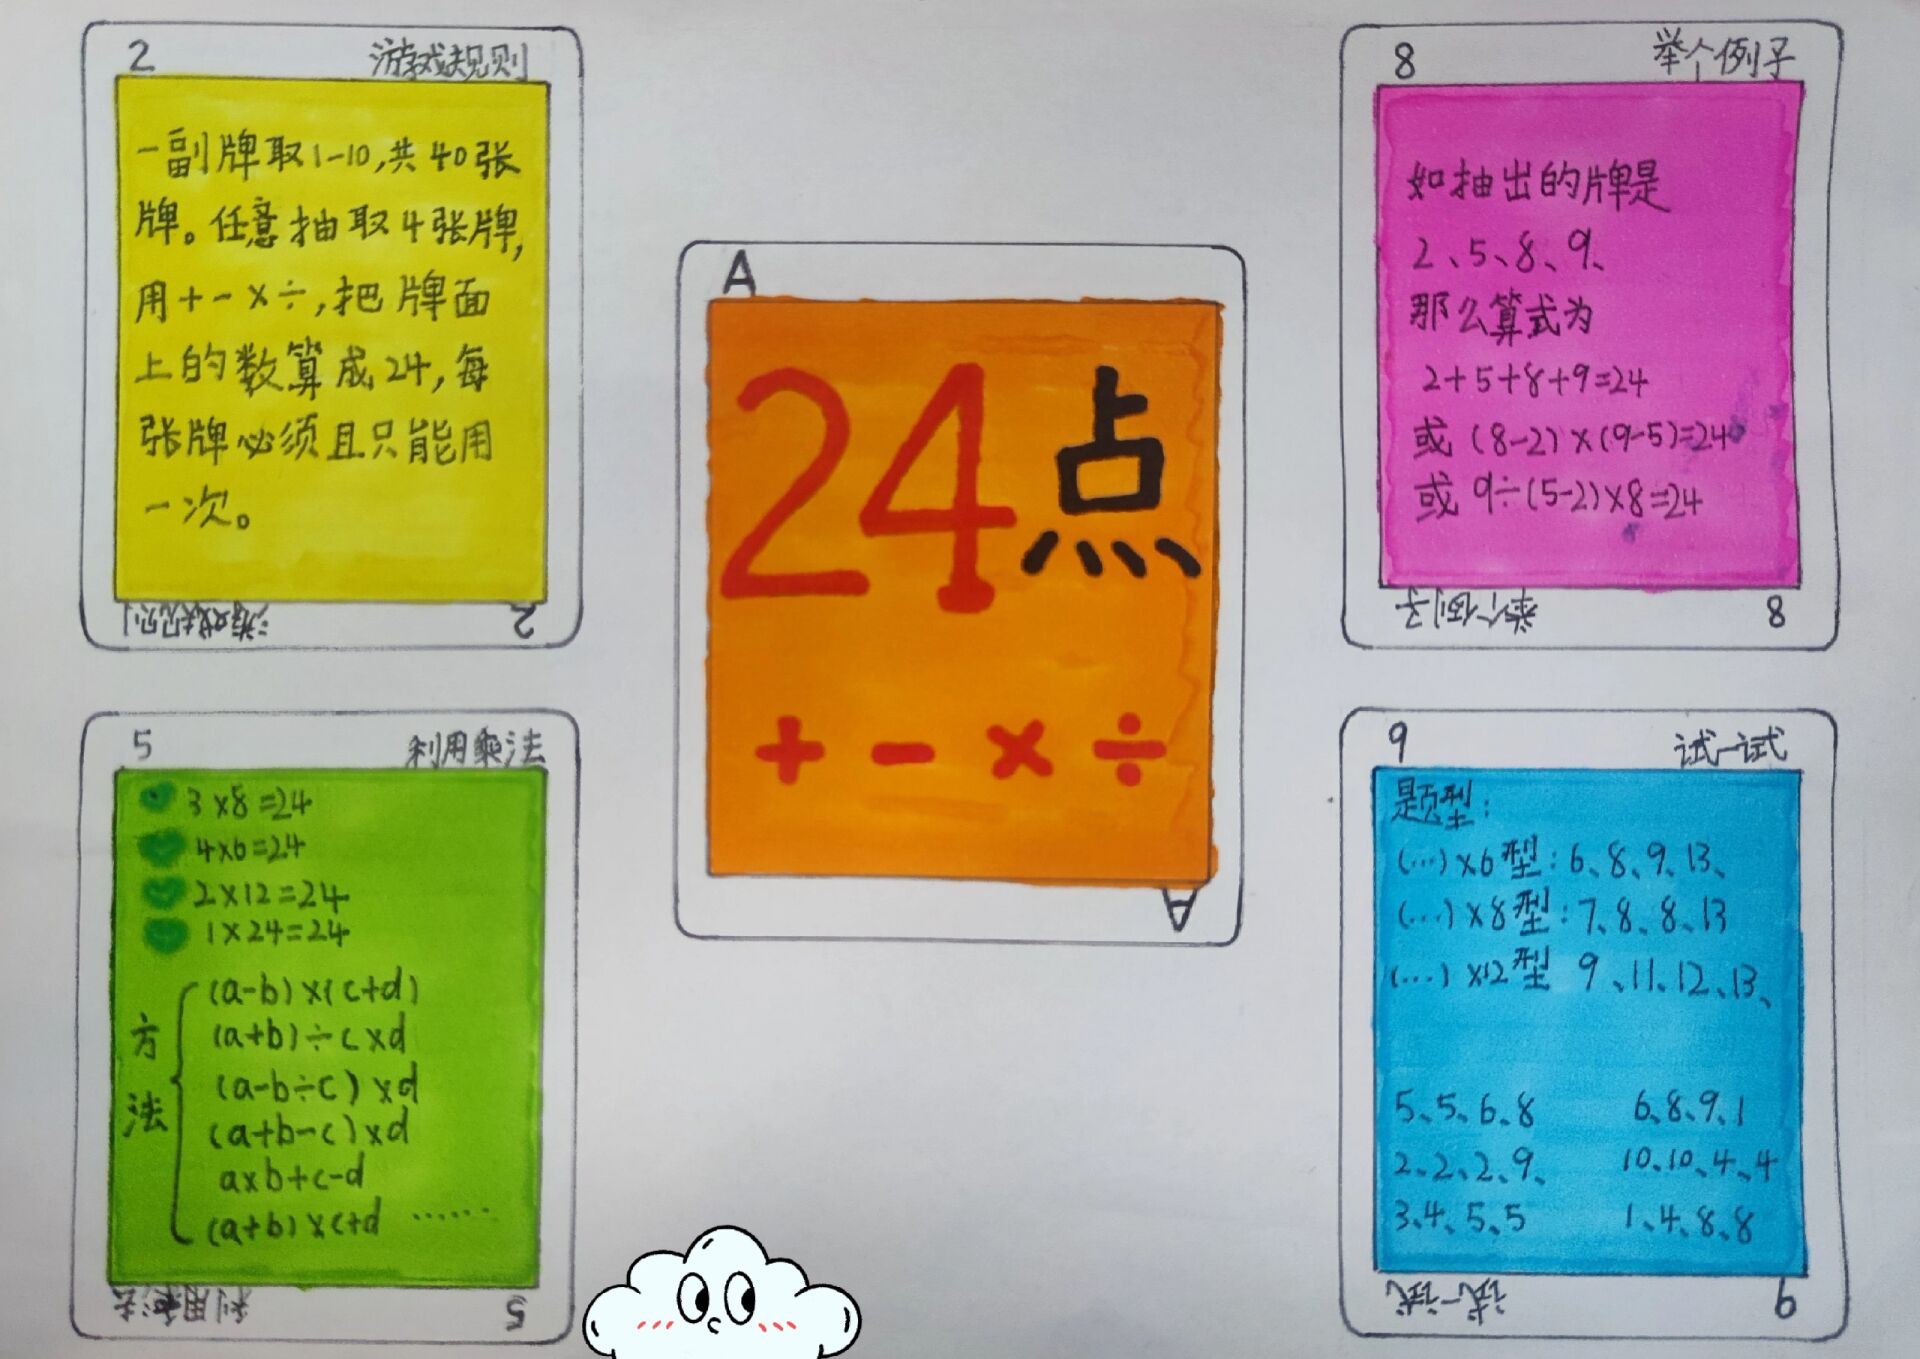 2 游戏规则
一副牌取1-10,共40张
牌。任意抽取4张牌,
用+-×÷,把牌面
上的数算成24,每
张牌必须且只能用
一次。
游戏规则 2
A
24点
+ - × ÷
A
8 举个例子
如抽出的牌是
2、5、8、9、
那么算式为
2+5+8+9=24
或 (8-2)×(9-5)=24
或 9÷(5-2)×8=24
举个例子 8
5 利用乘法
3×8=24
4×6=24
2×12=24
1×24=24
方法
(a-b)×(c+d)
(a+b)÷c×d
(a-b÷c)×d
(a+b-c)×d
a×b+c-d
(a+b)×c+d ……
利用乘法 5
9 试一试
题型:
(…)×6型:6、8、9、13、
(…)×8型:7、8、8、13
(…)×12型 9、11、12、13、
5、5、6、8 6、8、9、1
2、2、2、9、 10、10、4、4
3、4、5、5 1、4、8、8
试一试 9